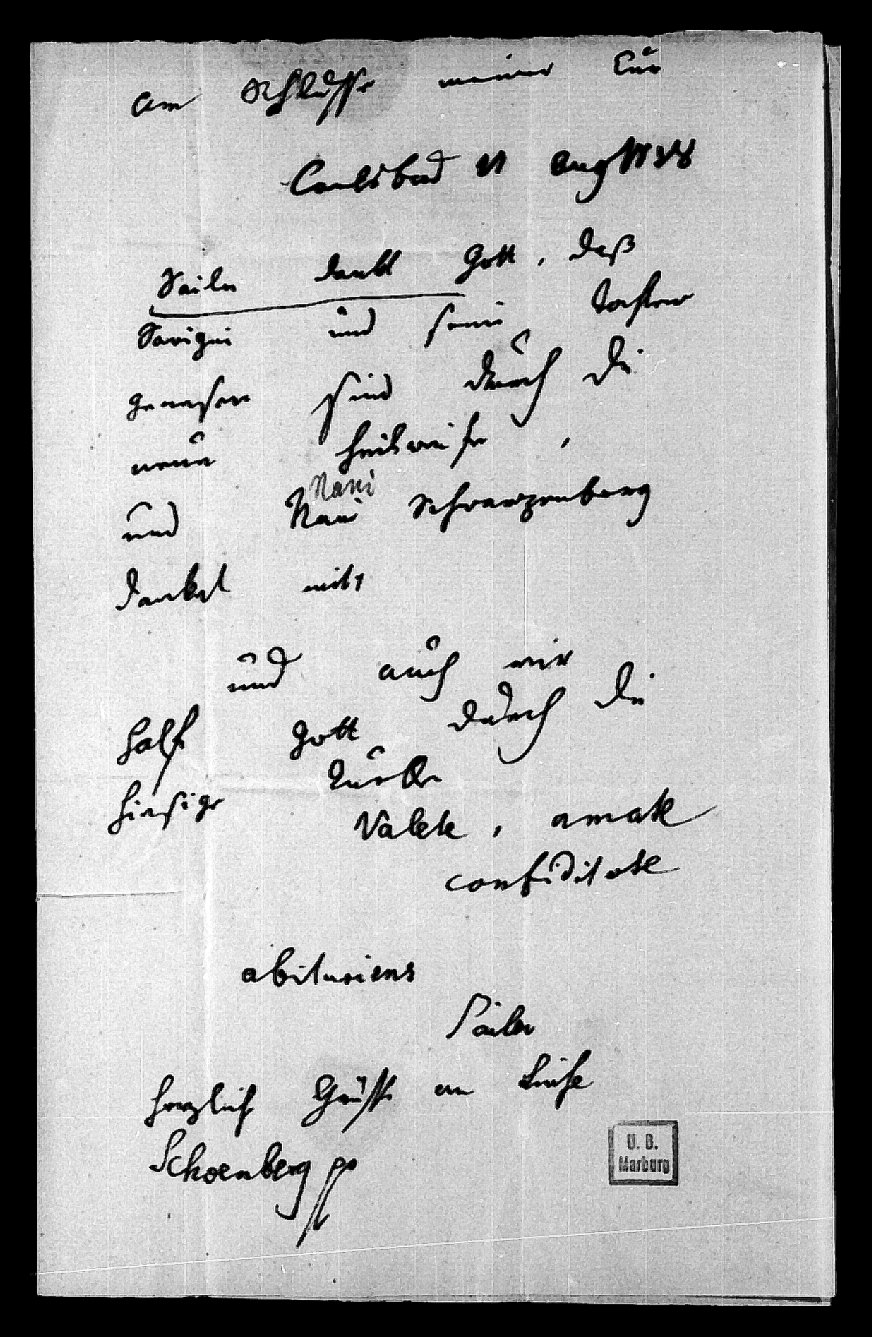 Am Schlusse meiner Cur
Carlsbad 11 Aug
Sailer dankt Gott, daß
Savigni und seine Tochter
genesen sind durch die
neue Heilweise,
Nani
und Nani Schwarzenberg
danket mit,
und auch mir
half Gott durch die
hiesige Quelle
Valete, amate
confidite
abituriens
Sailer
herzlich Grüsse an
Schoenberg
U. B.
Marburg